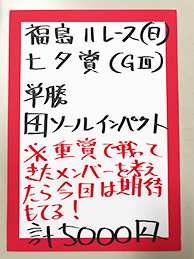 福島11レース(日)
七夕賞(GⅢ)
単勝
4ソールインパクト
※重賞で戦って
きたメンバーを考え
たら今日は期待
もてる!
計5000円